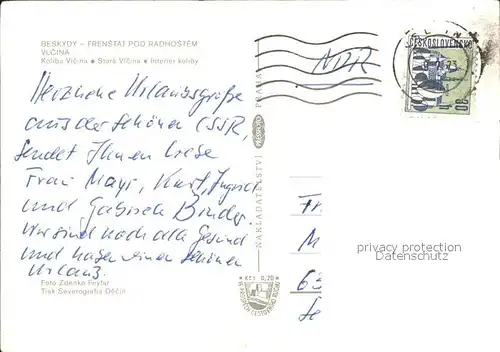 BESKYDY – FRENŠTÁT POD RADHOŠTĚM
VLČINA
Koliba Vlčina • Stará Vlčina • Interiér koliby
NDR
ČESKOSLOVENSKO
Herzliche Urlaubsgrüße
aus der schönen ČSSR,
sendet Ihnen liebe
Frau Mayr, Kurt, Ingrid
und Gabriele Binder.
Wir sind noch alle gesund
und haben einen schönen
Urlaub.
Foto Zdenko Feyfar
Tisk Severografia Děčín
NAKLADATELSTVÍ
PRAHA
Kčs 0,20
Fr
M
63
privacy protection
Datenschutz